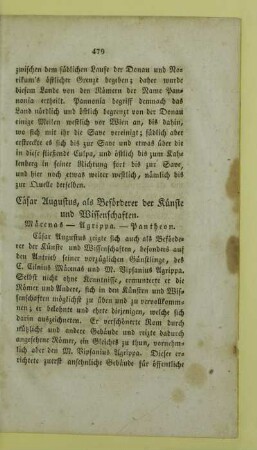 479
zwischen dem südlichen Laufe der Donau und No-
rikum's östlicher Grenze begeben; daher wurde
diesem Lande von den Römern der Name Pan-
nonia ertheilt. Pannonia begriff demnach das
Land nördlich und östlich begrenzt von der Donau
einige Meilen westlich vor Wien an, bis dahin,
wo sich mit ihr die Save vereinigt; südlich aber
erstreckte es sich bis zur Save und etwas über die
in diese fließende Culpa, und östlich bis zum Kah-
lenberg in seiner Richtung fort bis zur Save,
und hier noch etwas weiter westlich, nämlich bis
zur Quelle derselben.
Cäsar Augustus, als Beförderer der Künste
und Wissenschaften.
Mäcenas — Agrippa. — Pantheon.
Cäsar Augustus zeigte sich auch als Beförde-
rer der Künste und Wissenschaften, besonders auf
den Antrieb seiner vorzüglichen Günstlinge, des
C. Cilnius Mäcenas und M. Vipsanius Agrippa.
Selbst nicht ohne Kenntnisse, ermunterte er die
Römer und Andere, sich in den Künsten und Wis-
senschaften möglichst zu üben und zu vervollkomm-
nen; er belohnte und ehrte diejenigen, welche sich
darin auszeichneten. Er verschönerte Rom durch
nützliche und andere Gebäude und reizte dadurch
angesehene Römer, ein Gleiches zu thun, vornehm-
lich aber den M. Vipsanius Agrippa. Dieser er-
richtete zuerst ansehnliche Gebäude für öffentliche